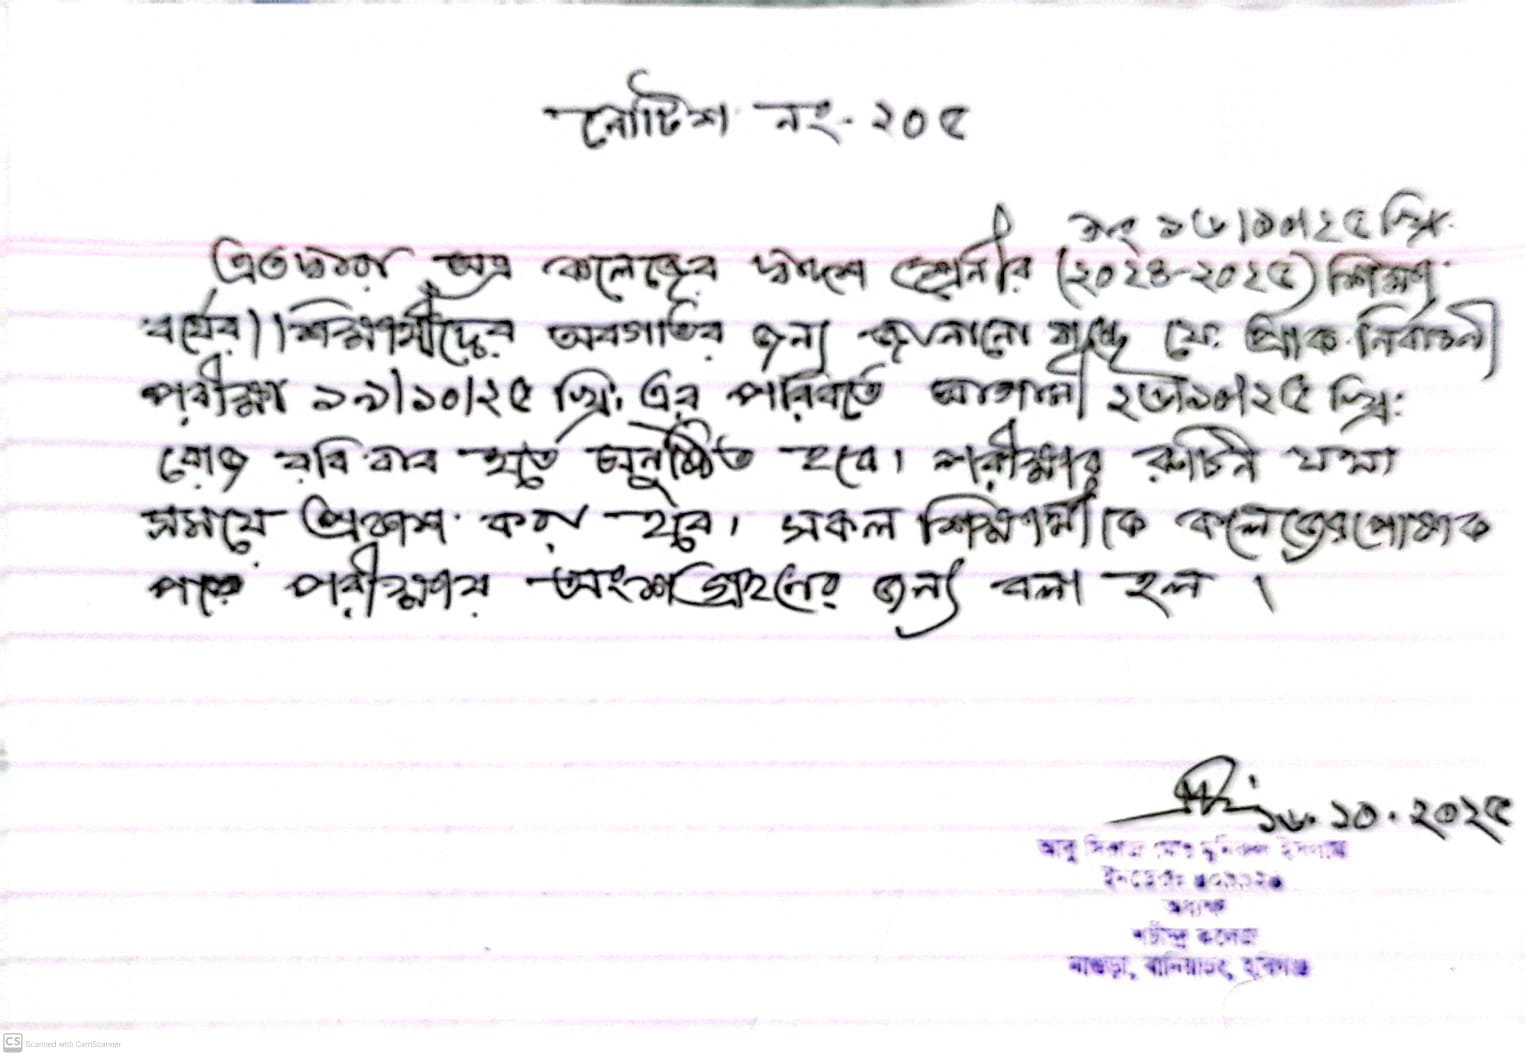 নোটিশ নং- ২০৫
তাং ১৬/১০/২৫ খ্রি.
এতদ্বারা অত্র কলেজের দ্বাদশ শ্রেনীর (২০২৪-২০২৫) শিক্ষা
বর্ষের। শিক্ষার্থীদের অবগতির জন্য জানানো যাচ্ছে যে প্রাক নির্বাচনী
পরীক্ষা ১৯/১০/২৫ খ্রি: এর পরিবর্তে আগামী ২৬/১০/২৫ খ্রি:
রোজ রবি বার হতে অনুষ্ঠিত হবে। পরীক্ষার রুটিন যথা
সময়ে প্রকাশ করা হবে। সকল শিক্ষার্থীকে কলেজের পোষাক
পরে পরীক্ষায় অংশগ্রহনের জন্য বলা হল।
১৬.১০.২০২৫
আবু সিরাজ মোঃ মুনিরুল ইসলাম
ইনডেক্স:
অধ্যক্ষ
শচীন্দ্র কলেজ
নাগুড়া, বানিয়াচং, হবিগঞ্জ
CS Scanned with CamScanner